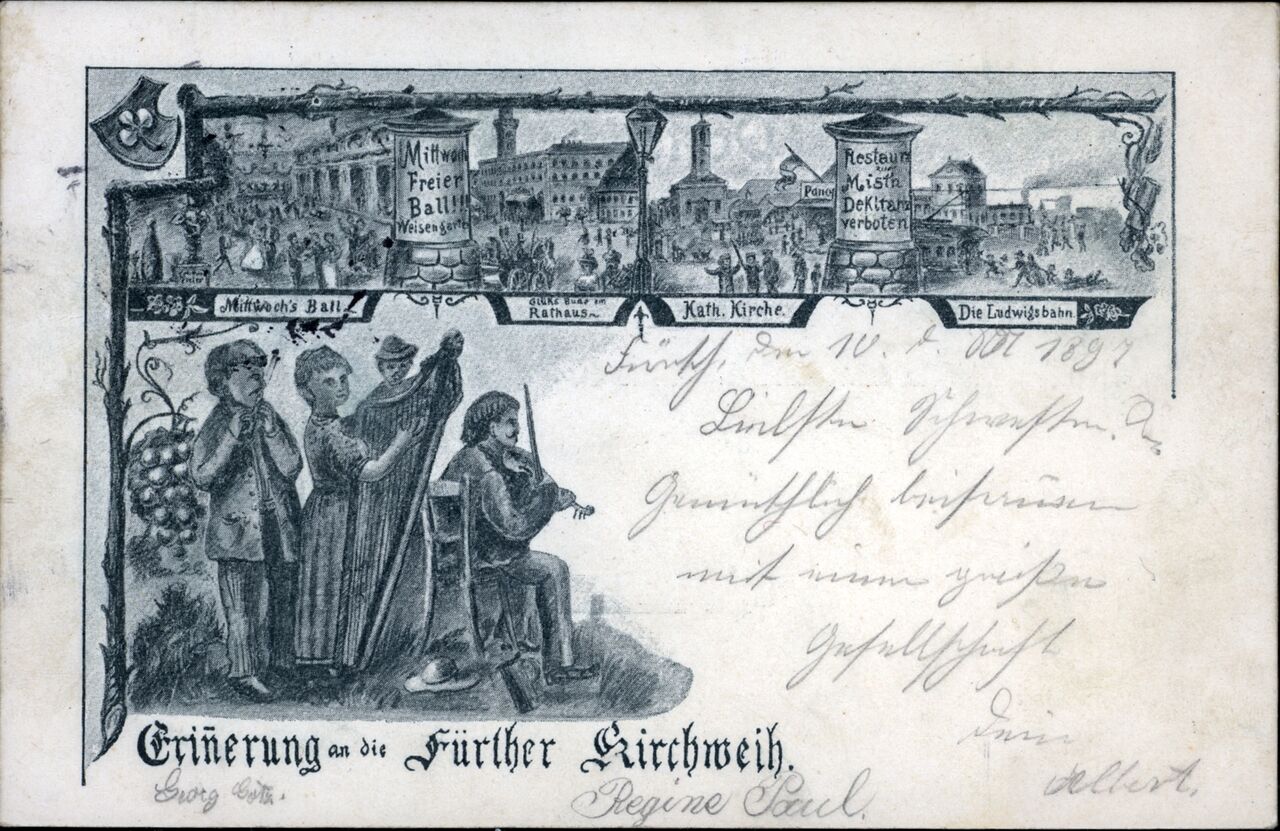 Mittwoch
Freier
Ball!!!
Weisengarten
Restaur
zur
Misth
DeKitanz
verboten
Pano
Mittwoch's Ball.
Glüks Bude im
Rathaus
Kath. Kirche.
Die Ludwigsbahn.
Fürth, den 10. d. Okt 1897
Liebste Schwester.
Gemüthlich beisammen
mit einer großen
Gesellschaft
Dein
Albert.
Eriñerung an die Fürther Kirchweih.
Georg Götz.
Regine Paul.